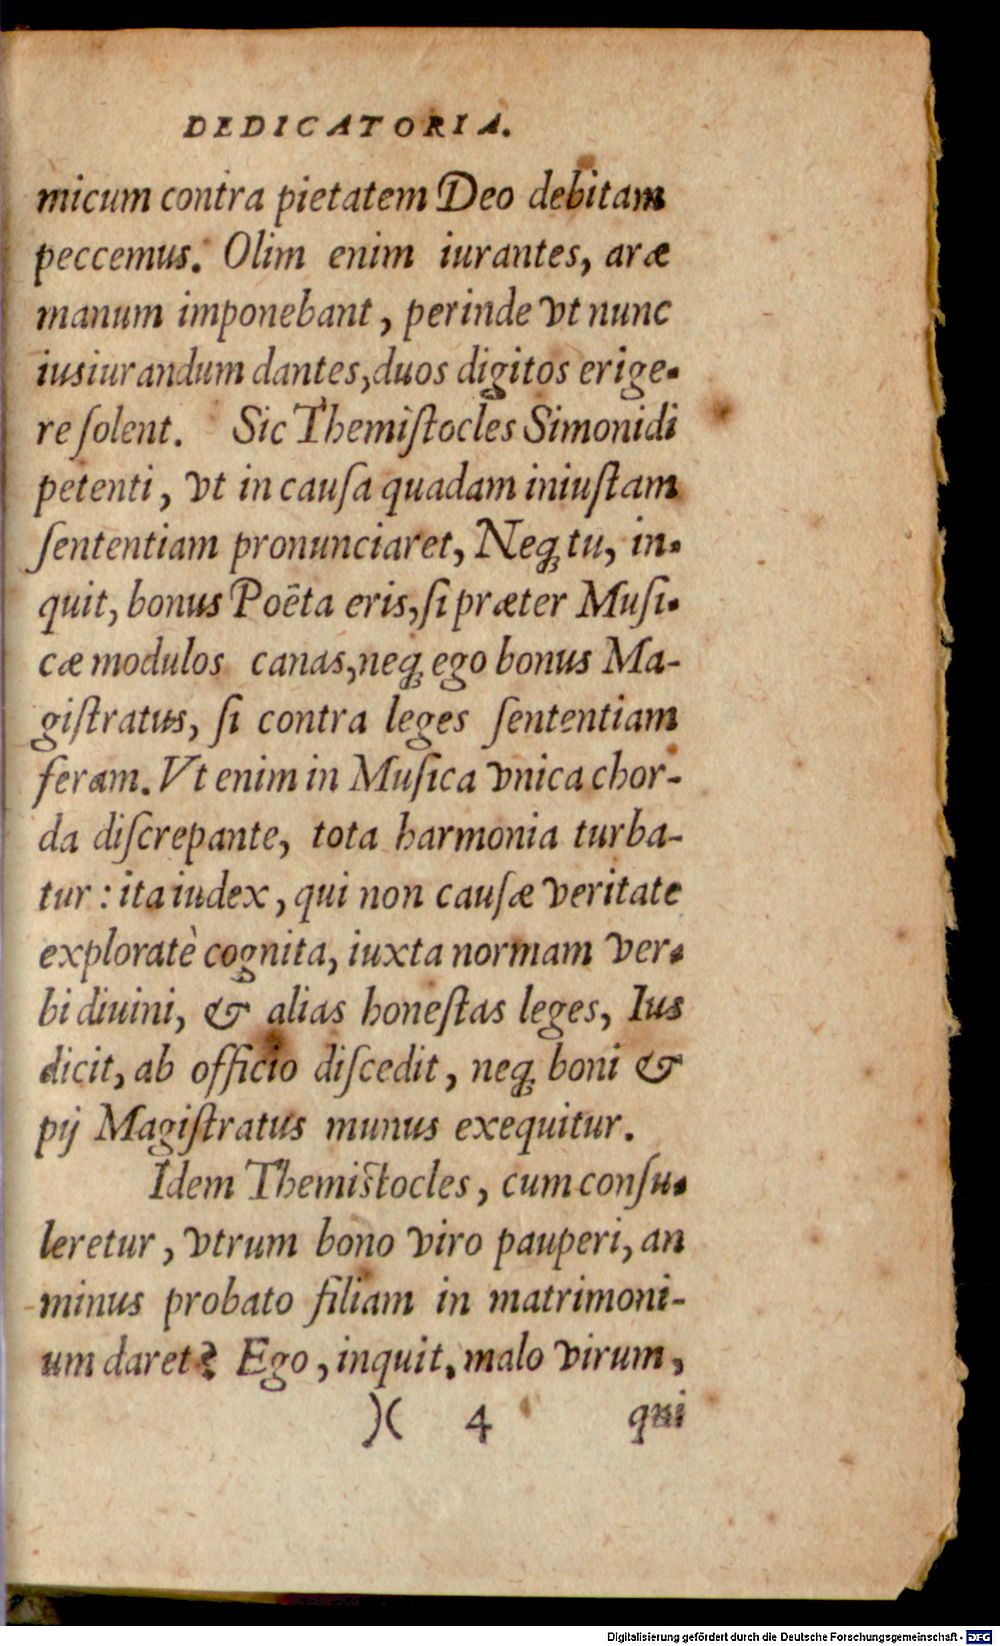 DEDICATORIA.
micum contra pietatem Deo debitam
peccemus. Olim enim iurantes, aræ
manum imponebant, perinde vt nunc
iusiurandum dantes, duos digitos erige-
re ſolent. Sic Themiſtocles Simonidi
petenti, vt in cauſa quadam iniuſtam
ſententiam pronunciaret, Neq; tu, in-
quit, bonus Poëta eris, ſi præter Muſi-
cæ modulos canas, neq; ego bonus Ma-
giſtratus, ſi contra leges ſententiam
feram. Vt enim in Muſica vnica chor-
da diſcrepante, tota harmonia turba-
tur: ita iudex, qui non cauſæ veritate
exploratè cognita, iuxta normam ver-
bi diuini, & alias honeſtas leges, Ius
dicit, ab officio diſcedit, neq; boni &
pij Magiſtratus munus exequitur.
Idem Themiſtocles, cum conſu-
leretur, vtrum bono viro pauperi, an
minus probato filiam in matrimoni-
um daret? Ego, inquit, malo virum,
)( 4 qui
Digitalisierung gefördert durch die Deutsche Forschungsgemeinschaft - DFG